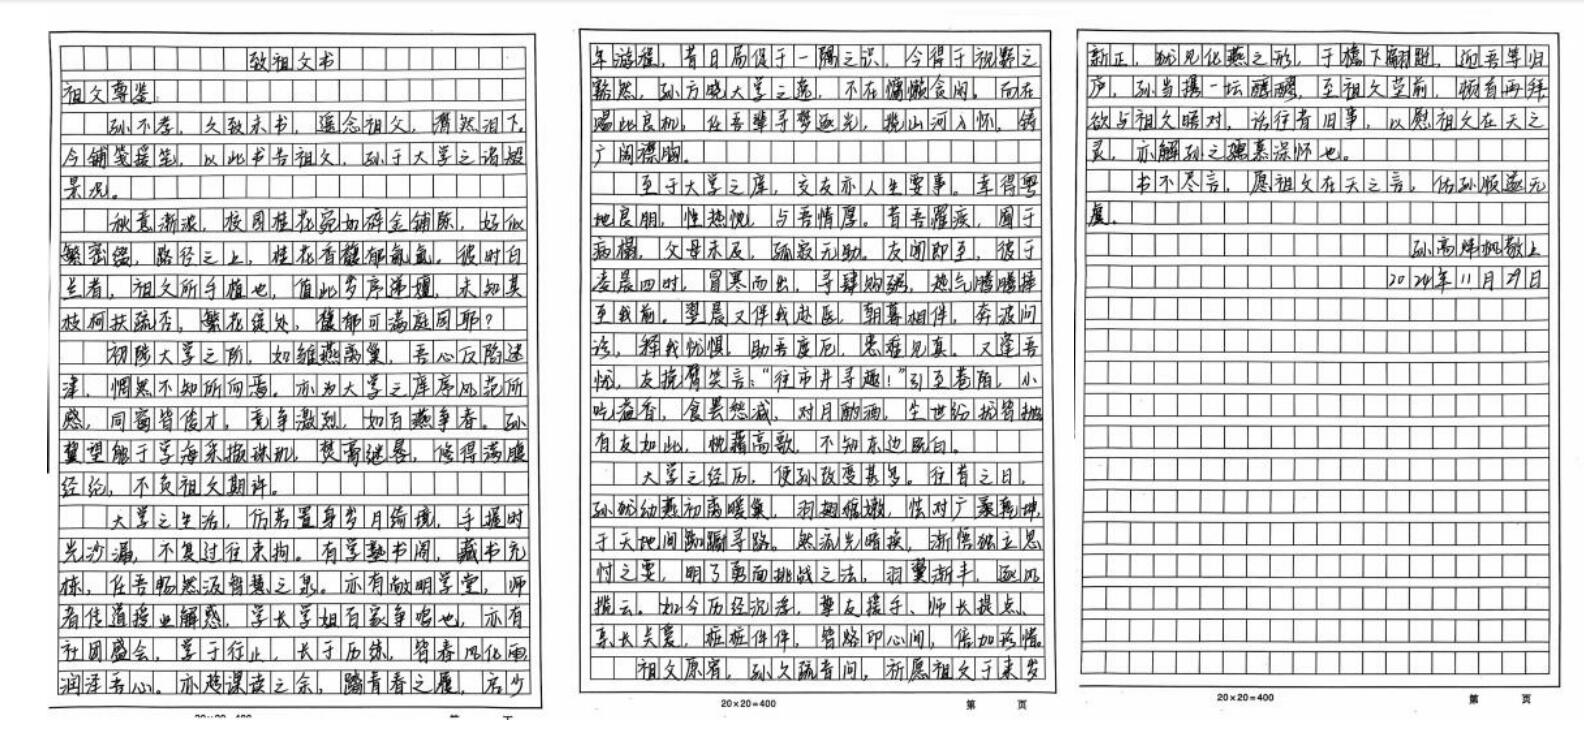 致祖父书
祖父尊鉴
孙不孝，久致未书，遥念祖父，潸然泪下。
今铺笺援笔，以此书告祖父，孙于大学之诸般
景况。
秋意渐浓，校园桂花宛如碎金铺陈，好似
繁密缀，路径之上，桂花香馥郁氤氲。彼时白
兰者，祖父所手植也，值此岁序递嬗，未知其
枝柯扶疏否，繁花绽处，馥郁可满庭园耶？
初踏大学之阶，如雏燕离巢，吾心反陷迷
津，惘然不知所向焉。亦为大学之庠序风范所
感，同窗皆俊才，竞争激烈，如百燕争春。孙
冀望能于学海采撷珠玑，焚膏继晷，修得满腹
经纶，不负祖父期许。
大学之生活，仿若置身岁月绮境，手握时
光沙漏，不复过往束拘。有学塾书阁，藏书充
栋，任吾畅然汲智慧之泉。亦有敞明学堂，师
者传道授业解惑，学长学姐百家争鸣也，亦有
社团盛会，学于行止，长于历练，皆春风化雨
润泽吾心。亦趁课读之余，踏青春之履，启少
年游程，昔日局促于一隅之识，今得于视野之
豁然，孙方晓大学之逸，不在慵懒贪闲。而在
赐此良机，任吾辈寻梦逐光，揽山河入怀，铸
广阔襟胸。
至于大学之庠，交友亦人生要事。幸得粤
地良朋，性热忱，与吾情厚。昔吾罹疾，囿于
病榻，父母未及，孤寂无助。友闻即至，彼于
凌晨四时，冒寒而出，寻肆购粥，热气腾腾捧
至我前。翌晨又伴我赴医，朝暮相伴，奔波问
诊，释我忧惧，助吾度厄，患难见真。又逢吾
忧，友挽臂笑言：“往市井寻趣！”引至巷陌，小
吃溢香，食罢愁减，对月酌酒，尘世纷扰皆抛
有友如此，枕藉高歌，不知东边既白。
大学之经历，使孙改变甚多。往昔之日，
孙犹幼燕初离暖巢，羽翅稚嫩，怯对广袤乾坤，
于天地间踟蹰寻路。然流光暗换，渐悟独立思
忖之要，明了勇面挑战之法，羽翼渐丰，逐风
揽云。如今历经沉浮，挚友援手、师长提点、
亲长关爱，桩桩件件，皆烙印心间，倍加珍惜。
祖父原宥，孙久疏音问，祈愿祖父于来岁
新正，犹见化燕之形，于檐下翩跹，迎吾等归
庐，孙当携一坛醽醁，至祖父茔前，顿首再拜
欲与祖父晤对，话往昔旧事，以慰祖父在天之
灵，亦解孙之孺慕深怀也。
书不尽言，愿祖父在天之言，佑孙顺遂无
虞。
孙高炜枫敬上
2024年11月29日
20×20=400
第 页
20×20=400
第 页